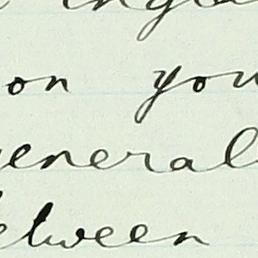 on you
eneral
etween